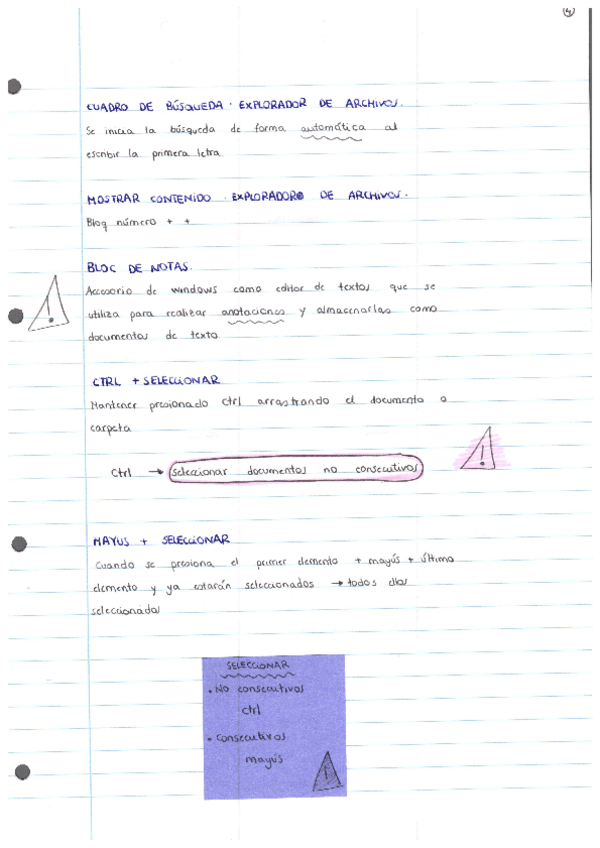 4
CUADRO DE BÚSQUEDA · EXPLORADOR DE ARCHIVOS.
Se inicia la búsqueda de forma automática al
escribir la primera letra
MOSTRAR CONTENIDO · EXPLORADOR DE ARCHIVOS.
Bloq número + +
BLOC DE NOTAS.
Accesorio de windows como editor de textos que se
utiliza para realizar anotaciones y almacenarlas como
documentos de texto
!
CTRL + SELECCIONAR
Mantener presionado ctrl arrastrando el documento o
carpeta
Ctrl → seleccionar documentos no consecutivos
!
MAYUS + SELECCIONAR
Cuando se presiona el primer elemento + mayús + último
elemento y ya estarán seleccionados → todos ellos
seleccionados
SELECCIONAR
• No consecutivos
ctrl
• consecutivos
mayús
!